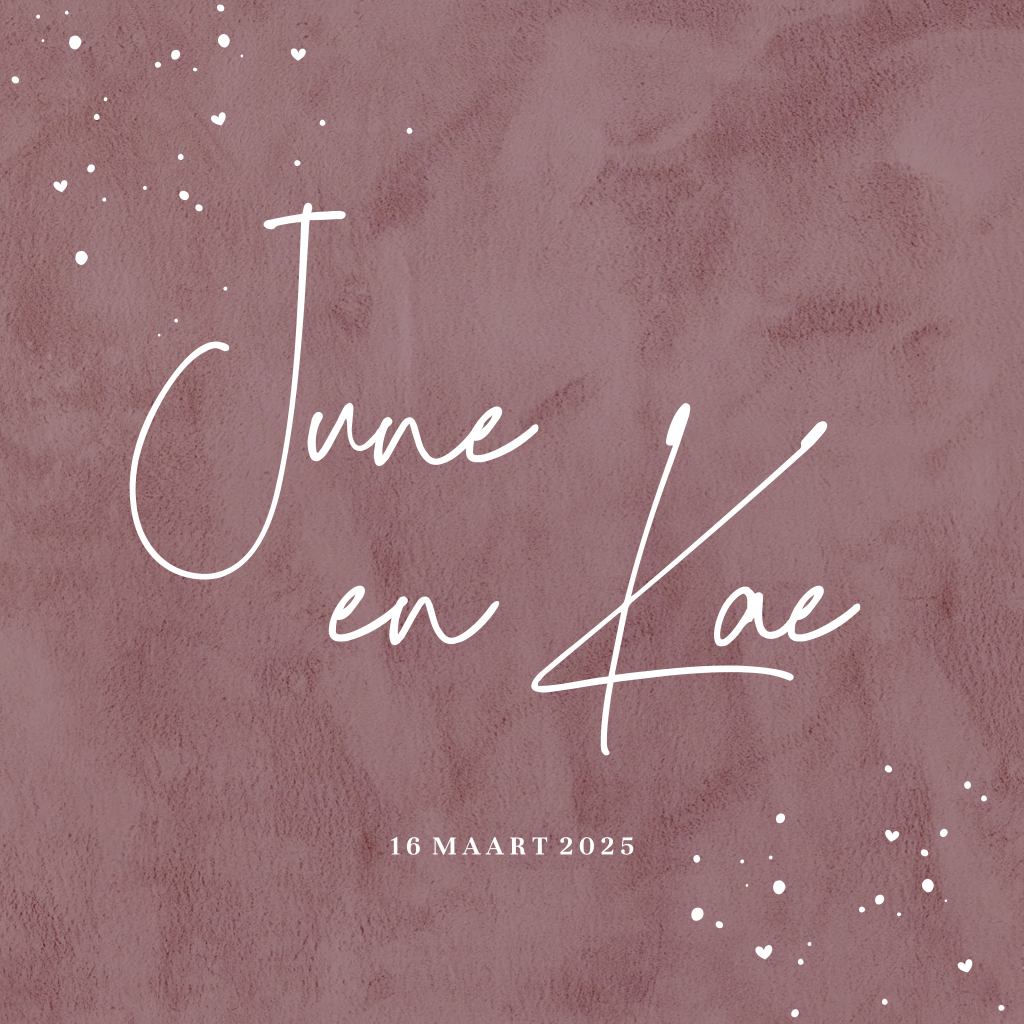 June
en Kae
16 MAART 2025